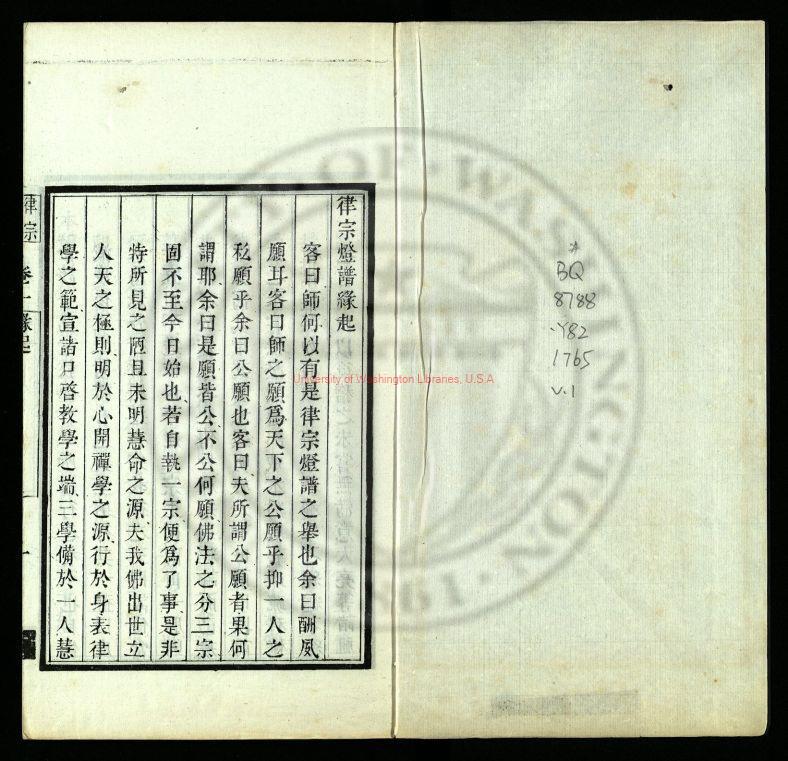 律宗燈譜緣起
客曰師何以有是律宗燈譜之舉也余曰酬風
願耳客曰師之願爲天下之公願乎抑一人之
私願乎余曰公願也客曰夫所謂公願者果何
謂耶余曰是願皆公不公何願佛法之分三宗
固不至今日始也若自執一宗便爲了事是非
特所見之陋且未明慧命之源夫我佛出世立
人天之極則明於心開禪學之源行於身表律
學之範宣諸口啓教學之端三學備於一人慧
律宗
卷一緣起
一
*
BQ
8788
.Y82
1765
v.1
University of Washington Libraries, U.S.A
UNIVERSITY OF WASHINGTON
1861